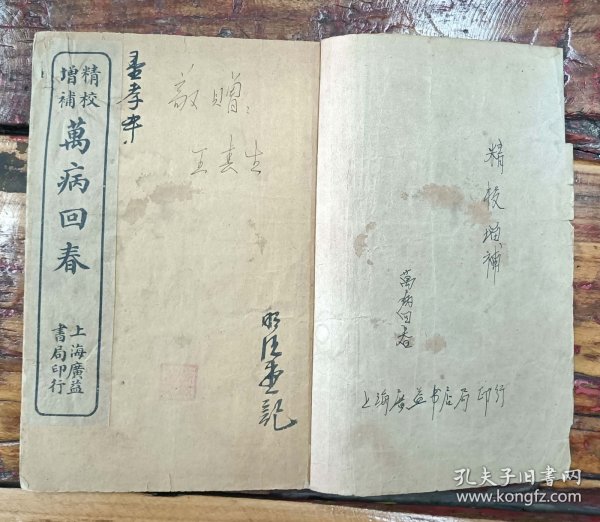 精校
增補
萬病回春
上海廣益
書局印行
敬贈:
王春生
精校增補
萬病回春
上海廣益书店局 印行
孔夫子旧书网
www.kongfz.com